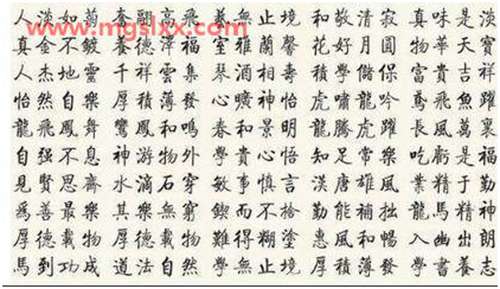 www.mgslxx.com
人淡如菊 奮翮高飛 藝無止境 和敬清寂 真味是淡
真金不鍍 養德澤福 室雅蘭馨 花好月圓 物華天寶
人杰地靈 千祥雲集 琴酒相壽 積學儲保 富貴吉祥
怡然自樂 厚積薄發 心曠神怡 虎嘯龍吟 鳶飛魚躍
龍飛鳳舞 鸞鳳和鳴 春和景明 龍騰虎躍 長風萬裏
自强不息 神游物外 和貴心悟 知足常樂 吃虧是福
見賢思齋 水滴石穿 敏事慎言 漢唐雄風 業精于勤
爲善最樂 其樂無窮 鍥而不捨 勤能補拙 龍馬精神
厚德載物 厚德載物 難得糊塗 惠風和暢 入幽出朗
馬到功成 道法自然 學無止境 厚積薄發 學書養志